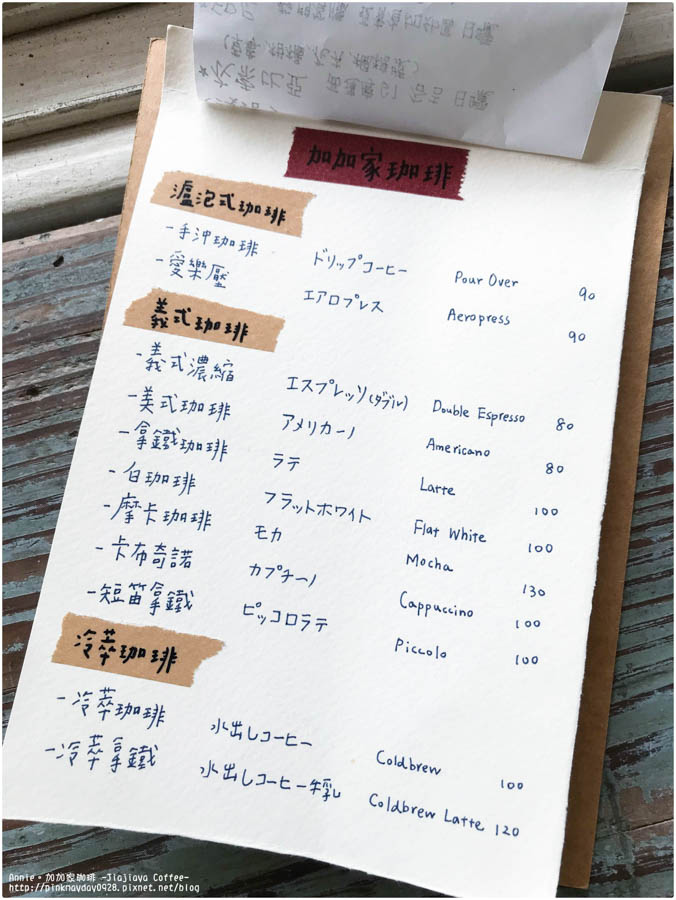 加加家珈琲
濾泡式珈琲
-手沖珈琲 ドリップコーヒー Pour Over 90
-愛樂壓 エアロプレス Aeropress 90
義式珈琲
-義式濃縮 エスプレッソ(ダブル) Double Espresso 80
-美式珈琲 アメリカーノ Americano 80
-拿鐵珈琲 ラテ Latte 100
-白珈琲 フラットホワイト Flat White 100
-摩卡珈琲 モカ Mocha 130
-卡布奇諾 カプチーノ Cappuccino 100
-短笛拿鐵 ピッコロラテ Piccolo 100
冷萃珈琲
-冷萃珈琲 水出しコーヒー Coldbrew 100
-冷萃拿鐵 水出しコーヒー牛乳 Coldbrew Latte 120
Annie。加加家珈琲 -Jiajiaya Coffee-
http://pinknayday0928.pixnet.net/blog